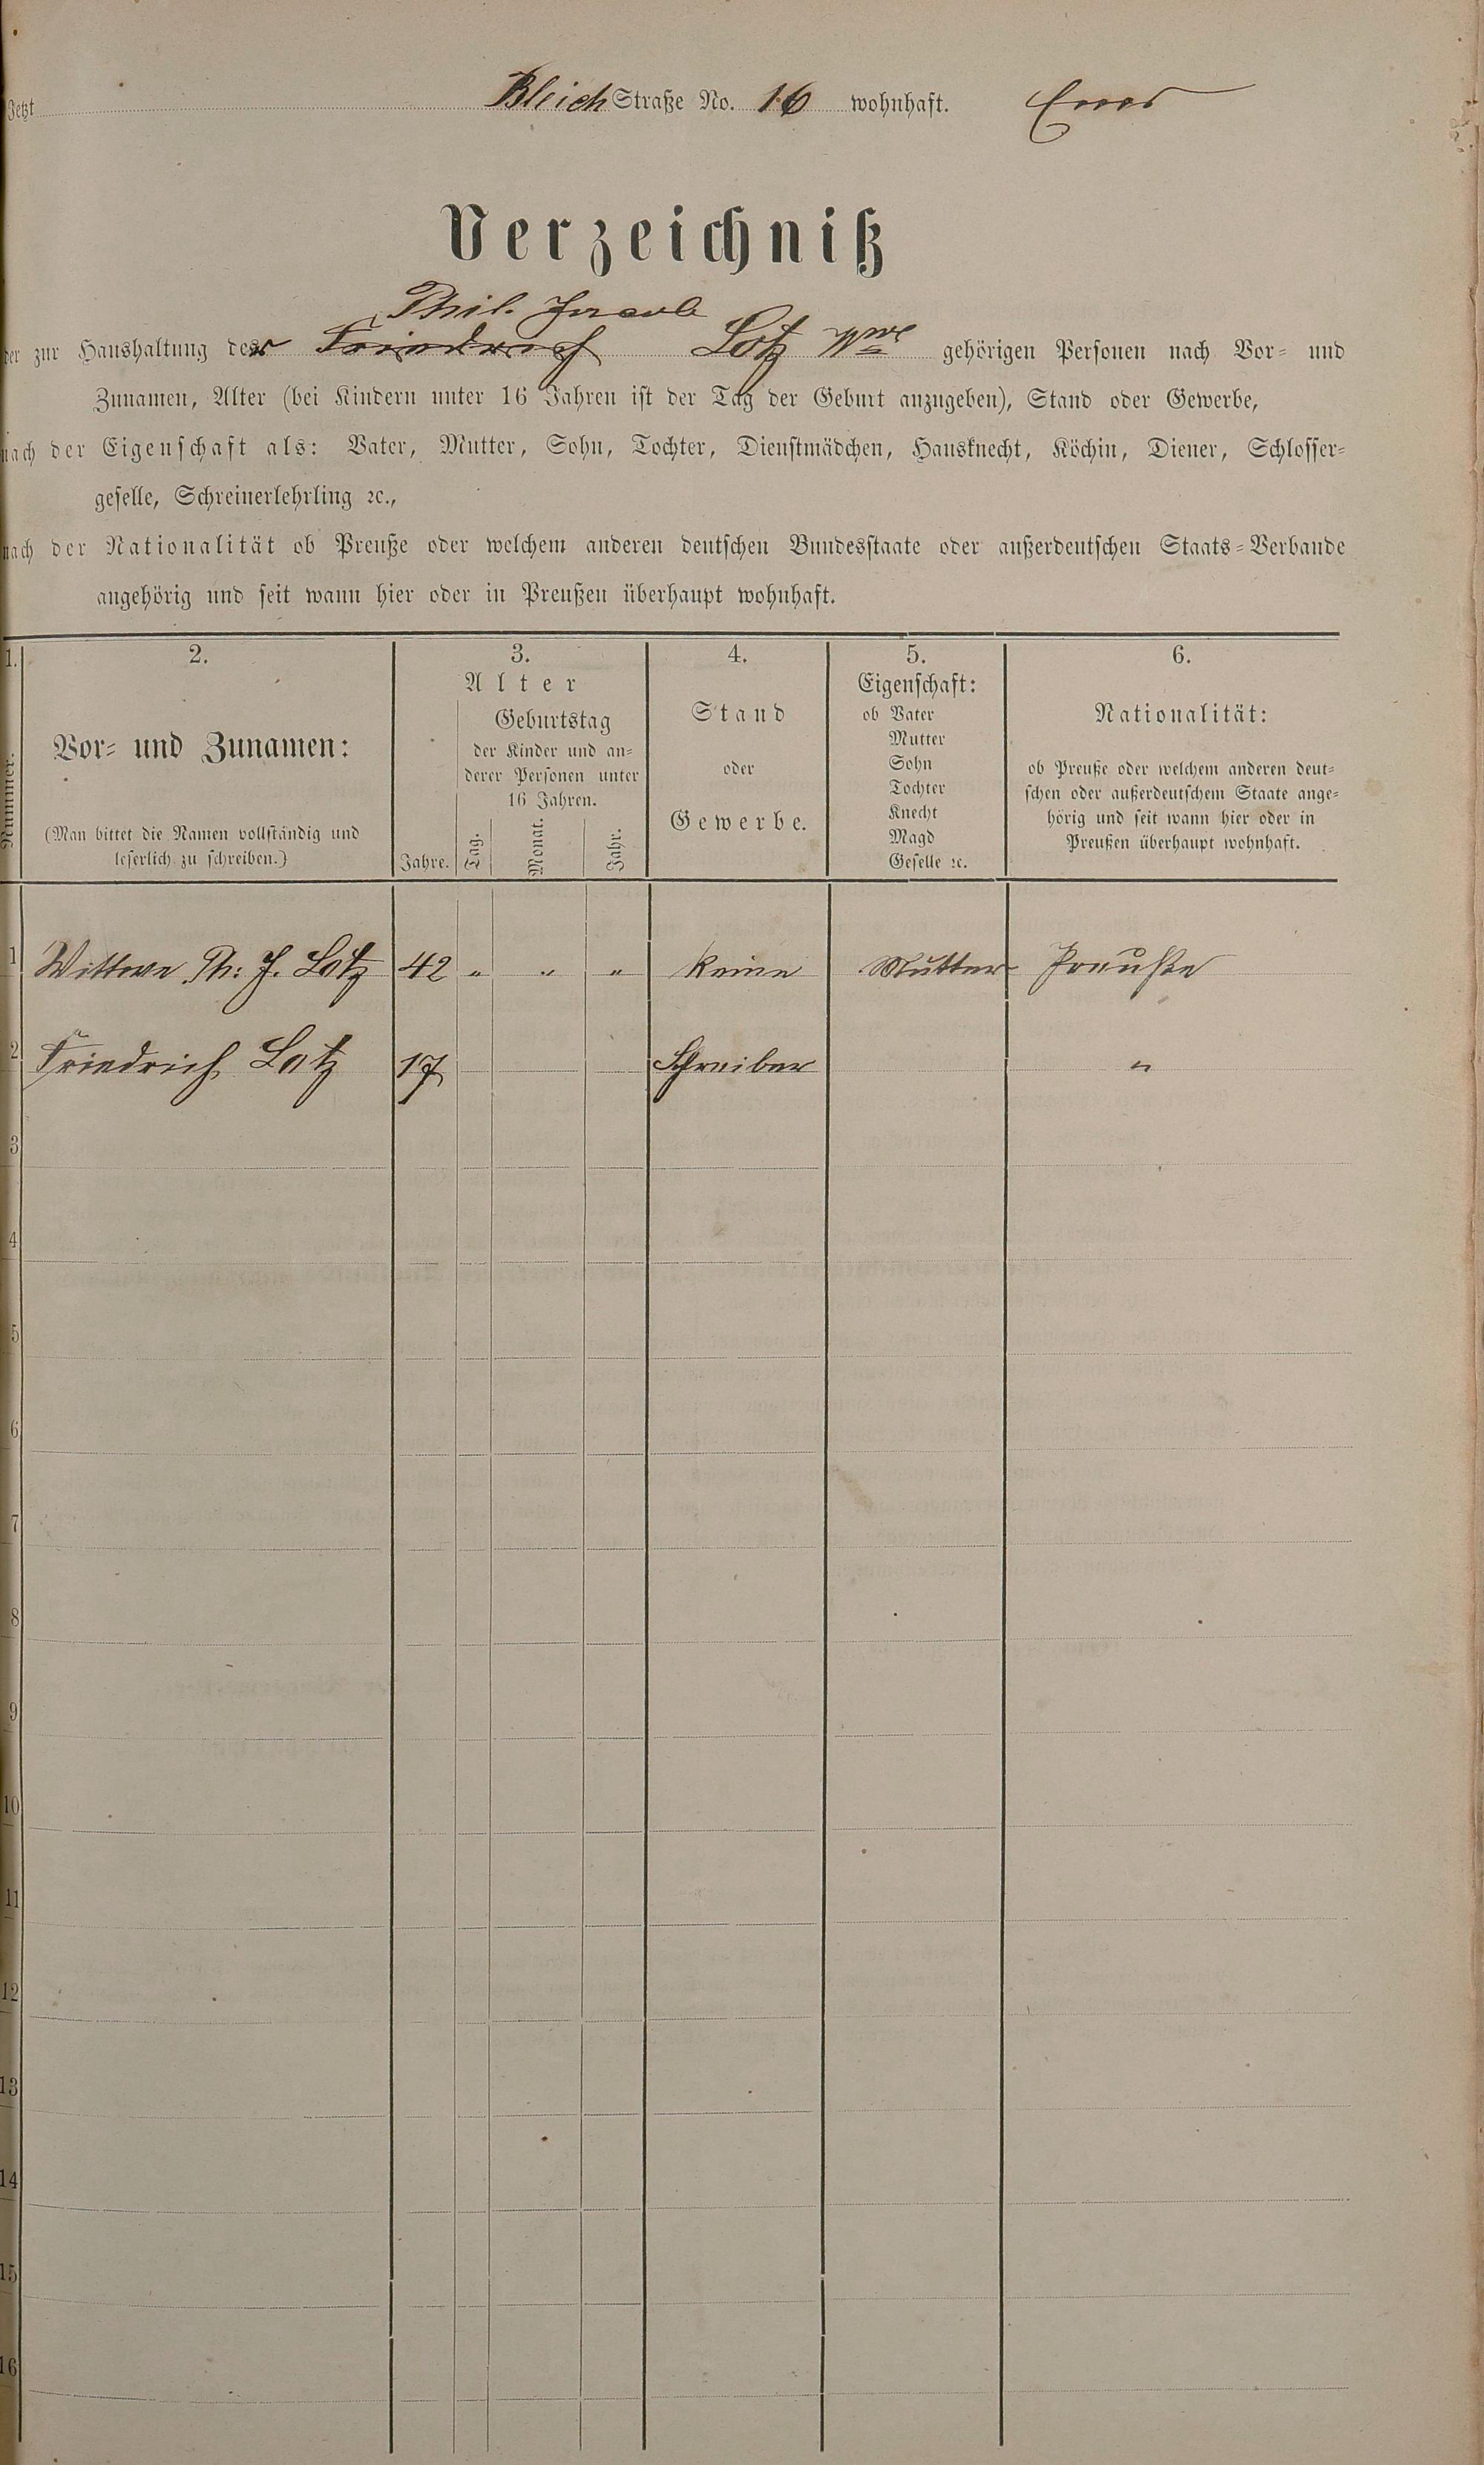 Jetzt Bleich Straße No. 16 wohnhaft. Ems
Verzeichniß
Phil. Jacob
der zur Haushaltung der Friedrich Lotz Wwe gehörigen Personen nach Vor- und
Zunamen, Alter (bei Kindern unter 16 Jahren ist der Tag der Geburt anzugeben), Stand oder Gewerbe,
nach der Eigenschaft als: Vater, Mutter, Sohn, Tochter, Dienstmädchen, Hausknecht, Köchin, Diener, Schlosser-
geselle, Schreinerlehrling ꝛc.,
nach der Nationalität ob Preuße oder welchem anderen deutschen Bundesstaate oder außerdeutschen Staats-Verbande
angehörig und seit wann hier oder in Preußen überhaupt wohnhaft.
1. 2. 3. 4. 5. 6.
Nummer.
Vor- und Zunamen:
(Man bittet die Namen vollständig und
leserlich zu schreiben.)
Alter
Jahre.
Geburtstag
der Kinder und an-
derer Personen unter
16 Jahren.
Tag. Monat. Jahr.
Stand
oder
Gewerbe.
Eigenschaft:
ob Vater
Mutter
Sohn
Tochter
Knecht
Magd
Geselle ꝛc.
Nationalität:
ob Preuße oder welchem anderen deut-
schen oder außerdeutschem Staate ange-
hörig und seit wann hier oder in
Preußen überhaupt wohnhaft.
1 Wittwe Ph: J. Lotz 42 " " " keine Mutter Preußin
2 Friedrich Lotz 17 Schreiber "
3
4
5
6
7
8
9
10
11
12
13
14
15
16